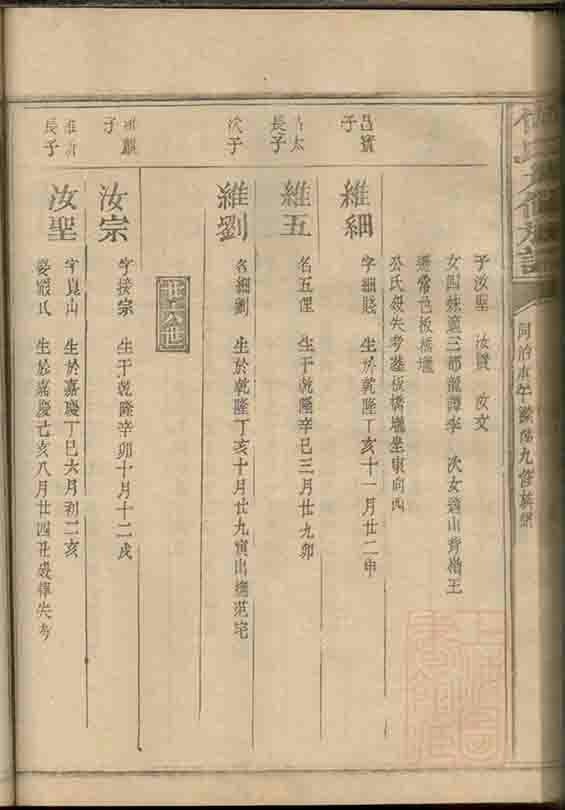 同治庚午歐陽九修族譜
子汝聖 汝賢 汝文
女四妹適三都龍譚李 次女適山背嶺王
公氏歿失考葬板橋壠坐東向西
子
維細
字細賤 生於乾隆丁亥十一月廿二申
長子
維五
名五俚 生于乾隆辛巳三月廿九卯
次子
維劉
名細劉 生於乾隆丁亥十月廿九寅出撫范宅
子
汝宗
字接宗 生于乾隆辛卯十月十二戌
長子
汝聖
字崑山 生於嘉慶丁巳六月初二亥
娶嚴氏 生於嘉慶己亥八月廿四丑歿葬失考